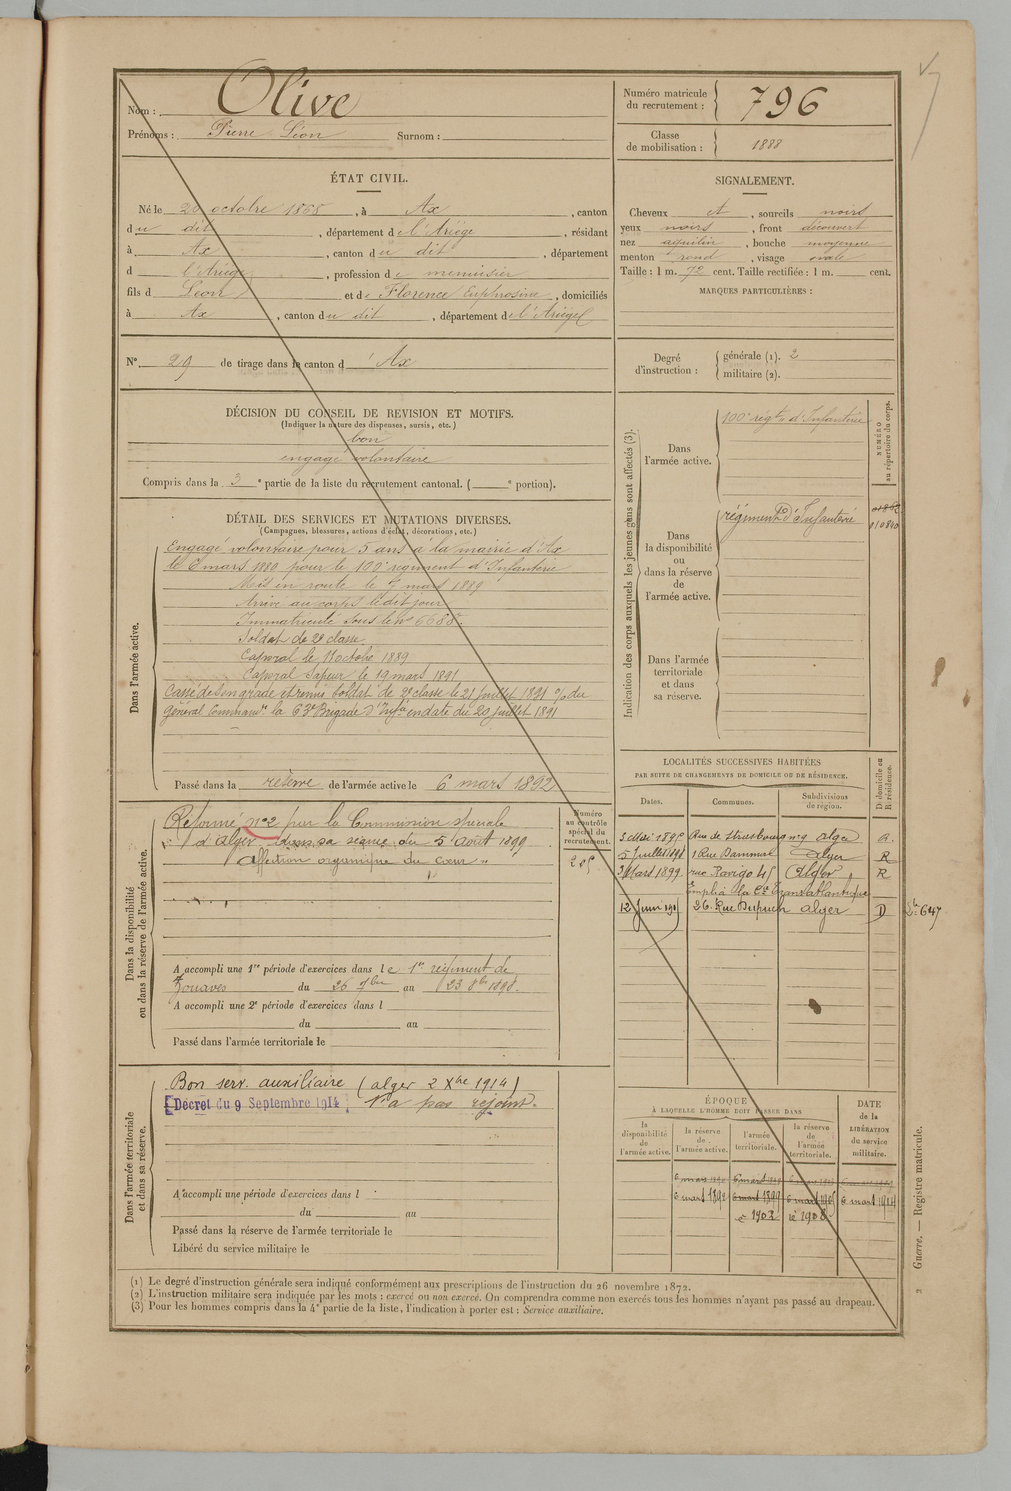 Nom : Olive
Prénoms : Pierre Léon Surnom :
Numéro matricule du recrutement : 796
Classe de mobilisation : 1888
ÉTAT CIVIL.
Né le octobre 1868, à Ax, canton
du dit, département de l'Ariège, résidant
à Ax, canton du dit, département
d l'Ariège, profession de menuisier
fils d Léon et de Florence Euphrosine, domiciliés
à Ax, canton du dit, département de l'Ariège
N° 29 de tirage dans le canton d'Ax
SIGNALEMENT.
Cheveux et, sourcils noirs
yeux noirs, front découvert
nez aquilin, bouche moyenne
menton rond, visage ovale
Taille : 1 m. 72 cent. Taille rectifiée : 1 m. cent.
MARQUES PARTICULIÈRES :
Degré d'instruction : générale (1). 2
militaire (2).
DÉCISION DU CONSEIL DE REVISION ET MOTIFS.
(Indiquer la nature des dispenses, sursis, etc.)
bon
engagé volontaire
Compris dans la 3e partie de la liste du recrutement cantonal. ( e portion).
DÉTAIL DES SERVICES ET MUTATIONS DIVERSES.
(Campagnes, blessures, actions d'éclat, décorations, etc.)
Dans l'armée active.
Engagé volontaire pour 5 ans a la mairie d'Ax
le 6 mars pour le régiment d'Infanterie
Mis en route le 7 mars 1889
Arrivé au corps le dit jour
Immatriculé sous le n° 6688.
Soldat de 2e classe.
Caporal le octobre 1889
Caporal Sapeur le 19 mars 1891
Cassé de son grade et remis Soldat de 2e classe le 21 Juillet 1891 o/o du
Général Commandt la 63e Brigade d'Infie en date du 20 Juillet 1891
Passé dans la réserve de l'armée active le 6 mars 1892
Indication des corps auxquels les jeunes gens sont affectés (3).
NUMÉRO au répertoire du corps.
Dans l'armée active.
100e régt d'Infanterie
Dans la disponibilité ou dans la réserve de l'armée active.
régiment d'Infanterie
010840
Dans l'armée territoriale et dans sa réserve.
Dans la disponibilité ou dans la réserve de l'armée active.
Numéro au contrôle spécial du recrutement.
Réformé n°2 par la Commission spéciale
d'Alger dans sa séance du 5 Août 1899
"affection organique du cœur"
A accompli une 1re période d'exercices dans le 1er régiment de
Zouaves du 26 7bre au 23 8bre 1898.
A accompli une 2e période d'exercices dans l
du au
Passé dans l'armée territoriale le
LOCALITÉS SUCCESSIVES HABITÉES
PAR SUITE DE CHANGEMENTS DE DOMICILE OU DE RÉSIDENCE.
Dates. Communes. Subdivisions de région. D. domicile ou R. résidence.
3 Mai Rue de Strasbourg n°9 alger R.
5 Juillet 1 Rue Alger R
3 Mars 1899 rue Rovigo 45 Alger R
Emploi à la Cie Transatlantique
12 Juin 26. Rue Dupuch alger D
647
Dans l'armée territoriale et dans sa réserve.
Bon serv. auxiliaire (alger 2 Xbre 1914)
Décret du 9 Septembre 1914 N'a pas rejoint.
A accompli une période d'exercices dans l
du au
Passé dans la réserve de l'armée territoriale le
Libéré du service militaire le
ÉPOQUE
À LAQUELLE L'HOMME DOIT PASSER DANS
la disponibilité de l'armée active. la réserve de l'armée active. l'armée territoriale. la réserve de l'armée territoriale.
DATE de la LIBÉRATION du service militaire.
6 mars 1892 6 mars 1899 6 mars 6 mars 1914
1902 1908
(1) Le degré d'instruction générale sera indiqué conformément aux prescriptions de l'instruction du 26 novembre 1872.
(2) L'instruction militaire sera indiquée par les mots : exercé ou non exercé. On comprendra comme non exercés tous les hommes n'ayant pas passé au drapeau.
(3) Pour les hommes compris dans la 4e partie de la liste, l'indication à porter est : Service auxiliaire.
2 Guerre. — Registre matricule.